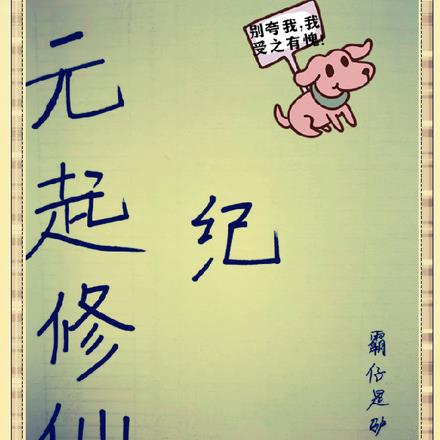 别夸我,我
受之有愧!
元起修仙
纪
霸仔是